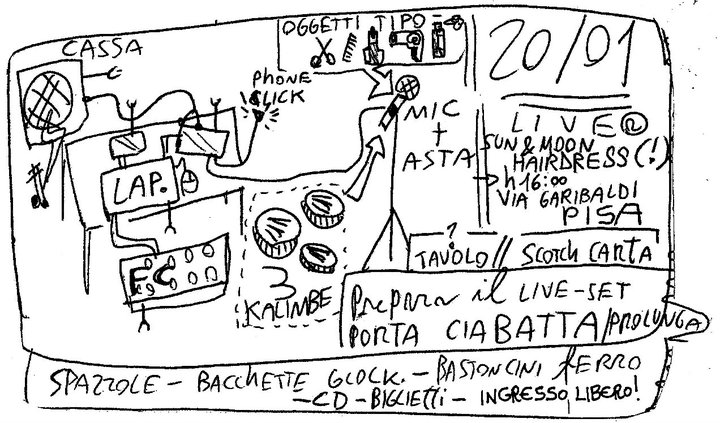 CASSA
OGGETTI TIPO
PHONE
CLICK
MIC
+
ASTA
LAP.
FC
3
KALIMBE
20/01
LIVE @
SUN & MOON
HAIRDRESS(!)
h 16:00
VIA GARIBALDI
PISA
?
TAVOLO // SCOTCH CARTA
Prepara il LIVE-SET
PORTA CIABATTA/PROLUNGA
SPAZZOLE - BACCHETTE GLOCK. - BASTONCINI FERRO
- CD - BIGLIETTI - INGRESSO LIBERO!